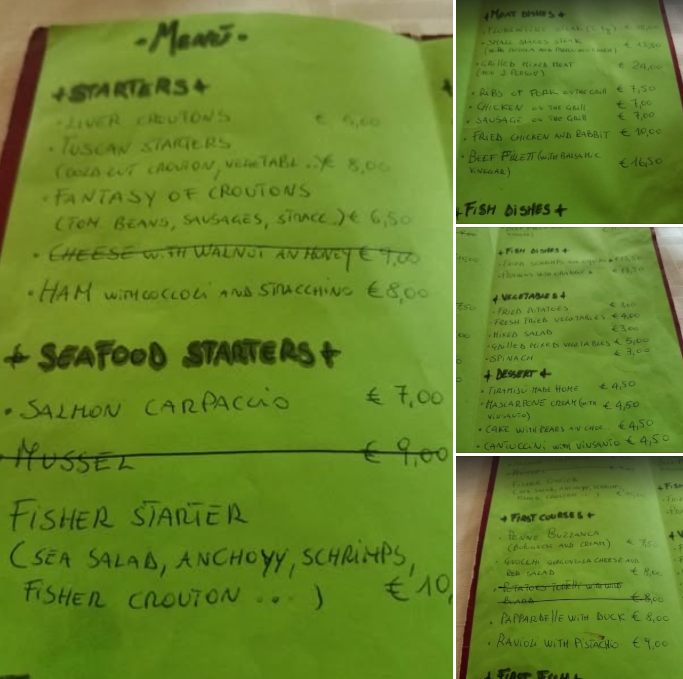 - MENÙ -
+ STARTERS +
• LIVER CROUTONS €
• TUSCAN STARTERS
(COLD CUT CROUTON, VEGETABL..) € 8,00
• FANTASY OF CROUTONS
(TOM. BEANS, SAUSAGES, STRACC.) € 6,50
• CHEESE WITH WALNUT AN HONEY € 9,00
• HAM WITH COCCOLI AND STRACCHINO € 8,00
+ SEAFOOD STARTERS +
• SALMON CARPACCIO € 7,00
• MUSSEL € 9,00
FISHER STARTER
(SEA SALAD, ANCHOVY, SCHRIMPS,
FISHER CROUTON ... ) € 10,
+ MEAT DISHES +
• GRILLED MIXED MEAT € 24,00
• RIBS OF PORK ON THE GRILL € 7,50
• CHICKEN ON THE GRILL € 7,00
• SAUSAGE ON THE GRILL € 7,00
• FRIED CHICKEN AND RABBIT € 10,00
• BEEF FILETT (WITH BALSAMIC € 16,50
VINEGAR)
+ FISH DISHES +
+ FISH DISHES +
+ VEGETABLES +
• FRIED POTATOES €
• FRESH FRIED VEGETABLES € 4,00
• MIXED SALAD € 3,00
• GRILLED MIXED VEGETABLES € 5,00
• SPINACH €
+ DESSERT +
• TIRAMISU MADE HOME € 4,50
• MASCARPONE CREAM (WITH € 4,50
VINSANTO)
• CAKE WITH PEARS AN CHOC. € 4,50
• CANTUCCINI WITH VINSANTO € 4,50
+ FIRST COURSES +
• PENNE BUZZANCA
AND CREAM) € 7,50
• GNOCCHI GORGONZOLA CHEESE AND
RED SALAD € 8,00
€ 8,00
• PAPPARDELLE WITH DUCK € 8,00
• RAVIOLI WITH PISTACHIO € 9,00
+ FIRST FISH +